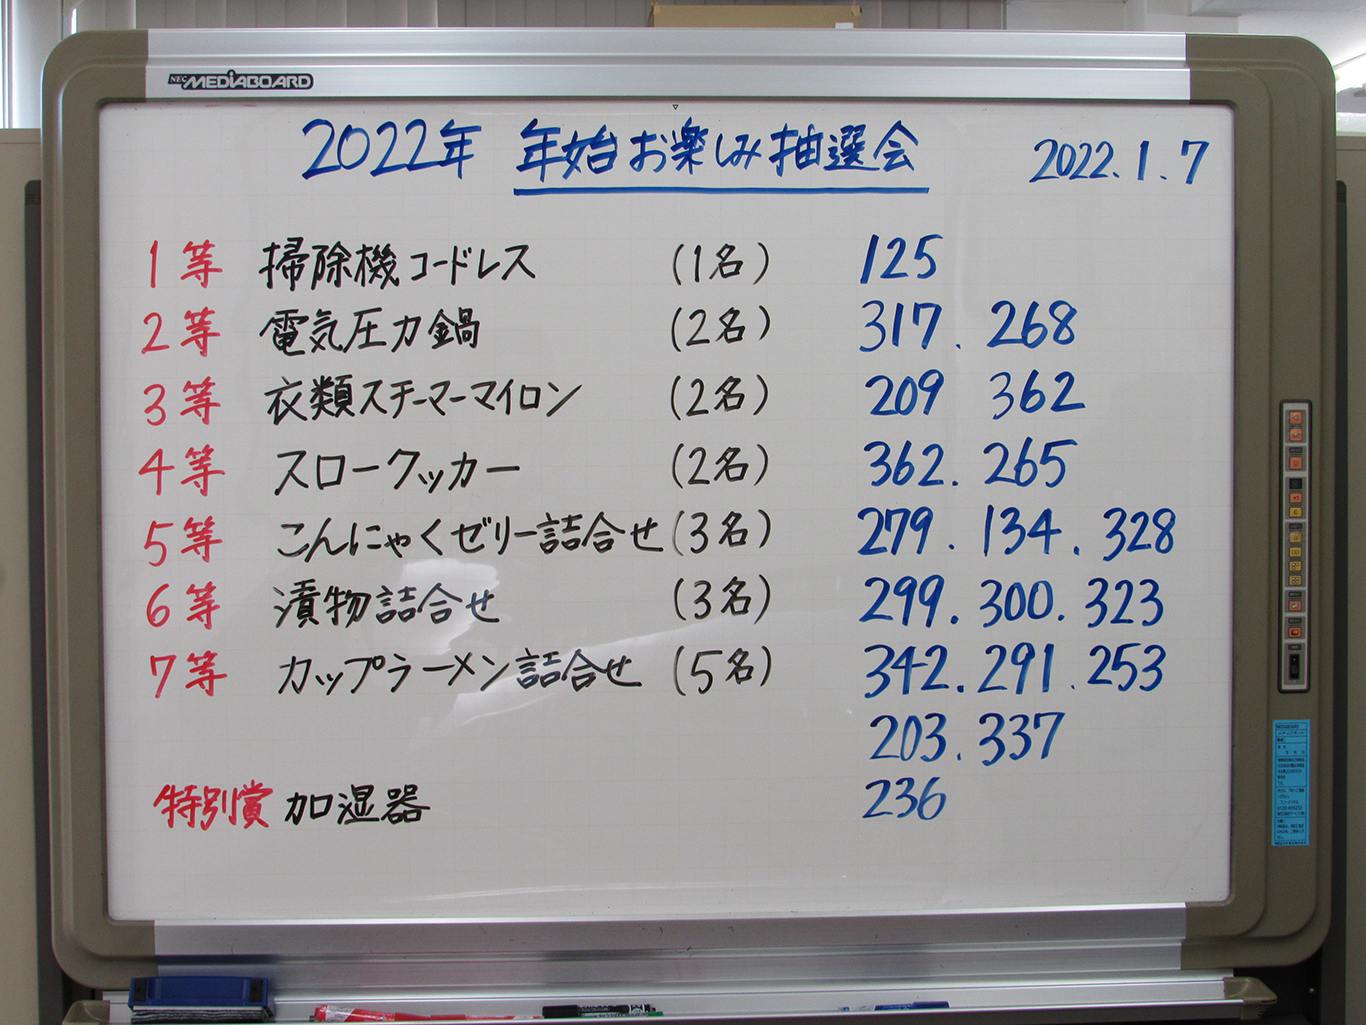 NEC MEDIABOARD
2022年 年始お楽しみ抽選会 2022.1.7
1等 掃除機コードレス (1名) 125
2等 電気圧力鍋 (2名) 317. 268
3等 衣類スチーマーマイロン (2名) 209 362
4等 スロークッカー (2名) 362. 265
5等 こんにゃくゼリー詰合せ (3名) 279. 134. 328
6等 漬物詰合せ (3名) 299. 300. 323
7等 カップラーメン詰合せ (5名) 342. 291. 253
203. 337
特別賞 加湿器 236